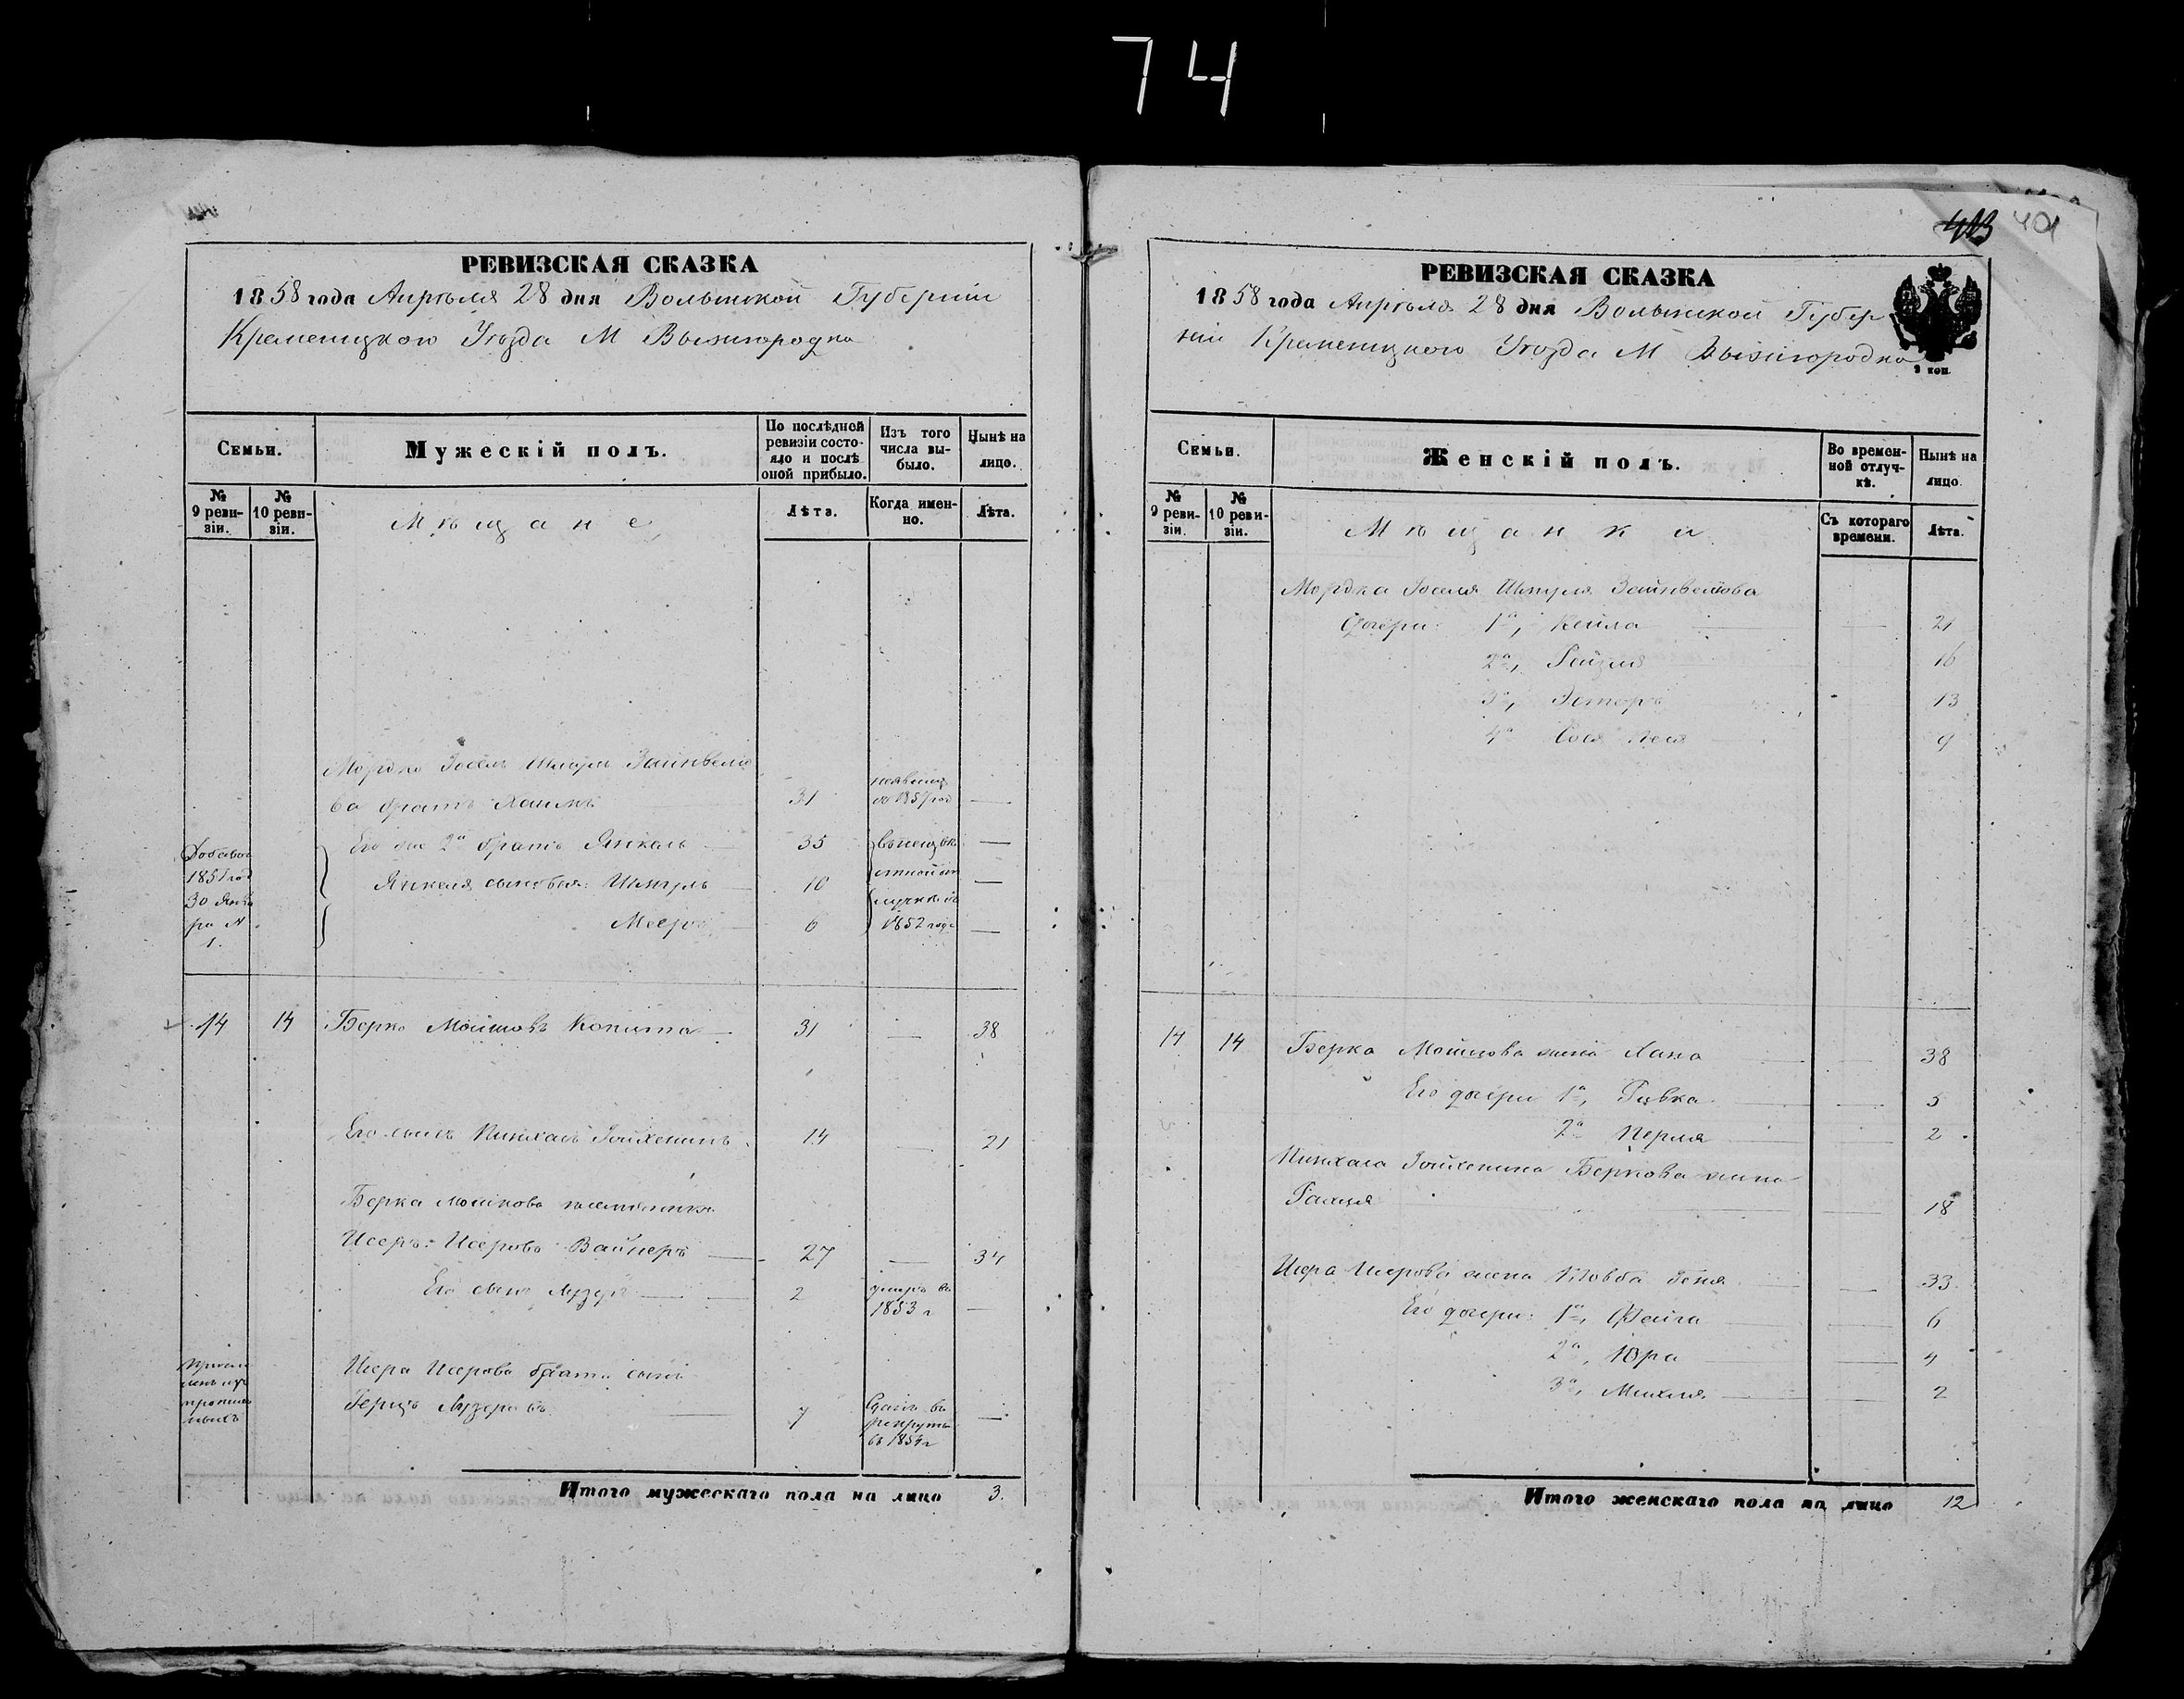 74
РЕВИЗСКАЯ СКАЗКА
1858 года Апрѣля 28 дня Волынской Губерніи
Кременецкого Уѣзда М Вышгородка
Семьи.
Мужескій полъ.
По послѣдней ревизіи состояло и послѣ оной прибыло.
Изъ того числа выбыло.
Нынѣ на лицо.
№ 9 ревизіи.
№ 10 ревизіи.
Мѣщане
Лѣта.
Когда именно.
Лѣта.
Мордко Іосель Шмуль Зайнвелева братъ Хаимъ 31 1857 год —
Его же 2й братъ Янкель 35 —
Янкеля сыновья: Шмуль 10 —
Мееръ 6 1852 года —
Добавоч 1851 год 30 Янва ря № 1.
14 14 Берко Мошковъ Копита 31 — 38
Его сынъ Пинхасъ 14 — 21
Берка Мошкова племянникъ
Исеръ Исеровъ Вайнеръ 27 — 34
Его сынъ Лузеръ 2 умеръ въ 1853 г —
Исера Исерова брата сынъ
Герцъ Лузеровъ 7 Сданъ въ рекруты въ 1854 г —
Итого мужескаго пола на лицо 3.
413 401
РЕВИЗСКАЯ СКАЗКА
1858 года Апрѣля 28 дня Волынской Губер
ніи Кременецкого Уѣзда М Вышгородка
Семьи.
Женскій полъ.
Во временной отлучкѣ.
Нынѣ на лицо.
№ 9 ревизіи.
№ 10 ревизіи.
Мѣщанки
Съ котораго времени.
Лѣта.
Мордка Іоселя Шмуля Зайнвелова
Дочери: 1я, Кейла — 21
2я, Рейзля 16
3я, Эстеръ 13
4я 9
14 14 Берка Мошкова жена Хана — 38
Его дочери 1я, Ривка — 5
2я Перля — 2
Пинхаса Берковa жена
18
Исера Исерова жена — 33
Его дочери: 1я, Фейга — 6
2я, Юра — 4
3я, Михля — 2
Итого женскаго пола на лицо 12